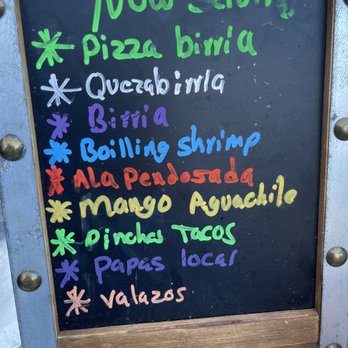 Now Serving
* Pizza birria
* Quezabirria
* Birria
* Boilling shrimp
* Ala Pendosada
* Mango Aguachile
* Pinches Tacos
* Papas locas
* Valazos